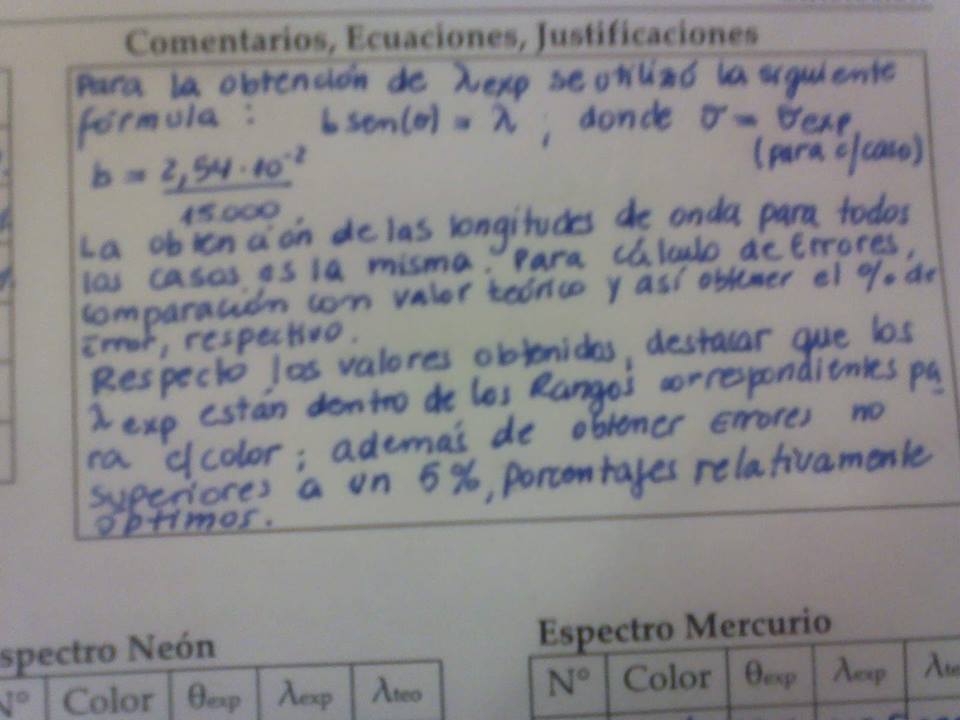 Comentarios, Ecuaciones, Justificaciones
Para la obtención de λexp se utilizó la siguiente
fórmula : b sen(σ) = λ ; donde σ = σexp
(para c/caso)
b = 2,54·10⁻²
15.000
La obtención de las longitudes de onda para todos
los casos es la misma. Para cálculo de Errores,
comparación con valor teórico y así obtener el % de
Error, respectivo.
Respecto los valores obtenidos, destacar que los
λexp están dentro de los Rangos correspondientes pa
ra c/color ; además de obtener Errores no
superiores a un 5%, porcentajes relativamente
óptimos.
spectro Neón
Espectro Mercurio
N° Color θexp λexp λteo
N° Color θexp λexp